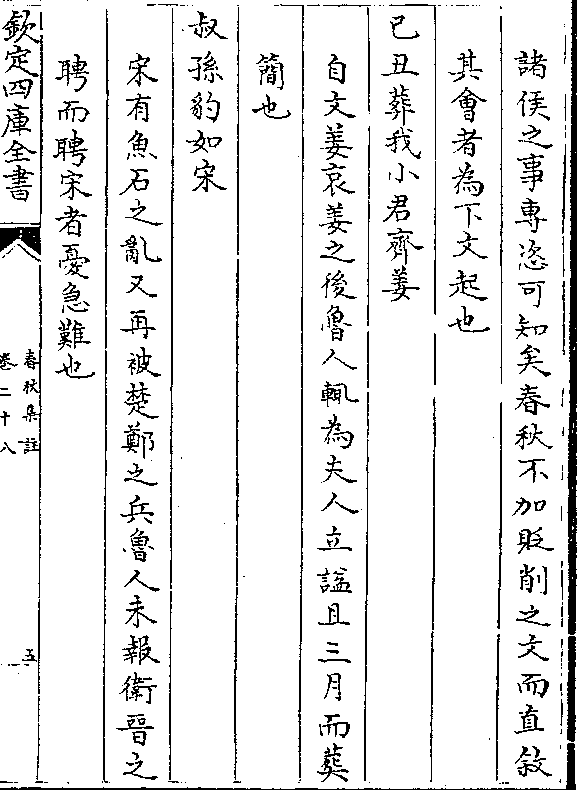 諸侯之事專恣可知矣春秋不加貶削之文而直敘
其會者為下文起也
己丑葬我小君齊姜
自文姜哀姜之後魯人輒為夫人立諡且三月而葬
簡也
叔孫豹如宋
宋有魚石之亂又再被楚鄭之兵魯人未報衛晉之
聘而聘宋者憂急難也
欽定四庫全書
春秋集註
卷二十八
五